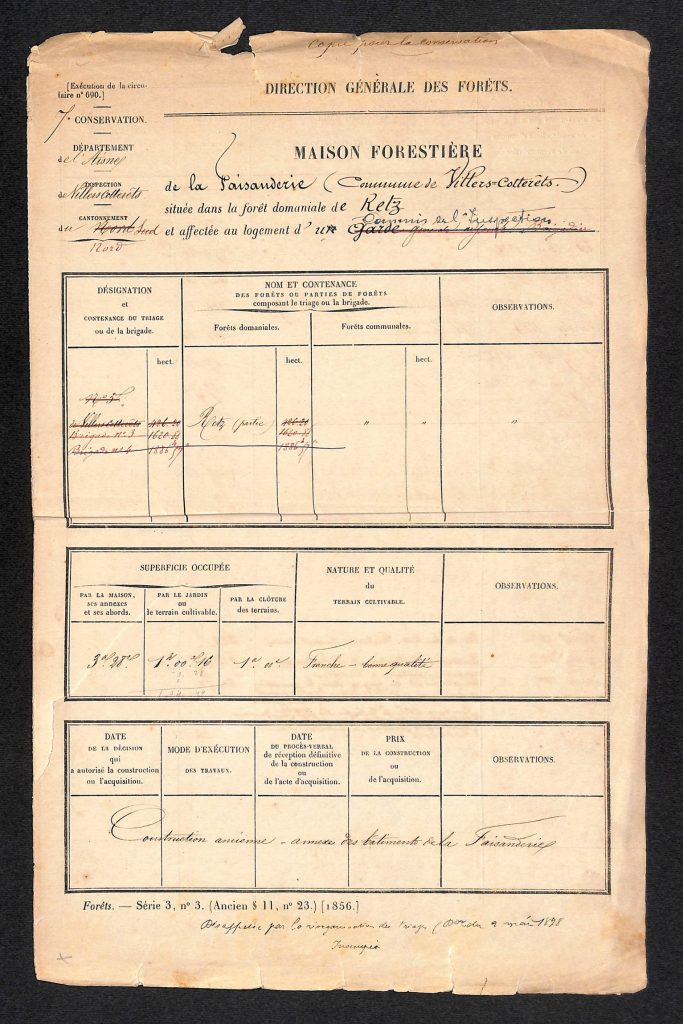 Copie pour la conservation
[Exécution de la circu-
laire n° 690.]
DIRECTION GÉNÉRALE DES FORÊTS.
7e CONSERVATION.
DÉPARTEMENT
de l'Aisne
INSPECTION
de Villers-Cotterêts
CANTONNEMENT
du Nord Sud
Nord
MAISON FORESTIÈRE
de la Faisanderie (Commune de Villers-Cotterêts.)
située dans la forêt domaniale de Retz
Commis de l'Inspection
et affectée au logement d'un Garde général Brigadier
DÉSIGNATION
et
CONTENANCE DU TRIAGE
ou de la brigade.
NOM ET CONTENANCE
DES FORÊTS OU PARTIES DE FORÊTS
composant le triage ou la brigade.
OBSERVATIONS.
Forêts domaniales.
Forêts communales.
hect. hect. hect.
N° 5
de Villers-Cotterêts Retz (partie) " " "
Brigade N° 3
Brigade n° 4
SUPERFICIE OCCUPÉE
NATURE ET QUALITÉ
du
TERRAIN CULTIVABLE.
OBSERVATIONS.
PAR LA MAISON,
ses annexes
et ses abords.
PAR LE JARDIN
ou
le terrain cultivable.
PAR LA CLÔTURE
des terrains.
3a 28c 1h 00a 16 1a 00c Franche - bonne qualité
DATE
DE LA DÉCISION
qui
a autorisé la construction
ou l'acquisition.
MODE D'EXÉCUTION
DES TRAVAUX.
DATE
DU PROCÈS-VERBAL
de réception définitive
de la construction
ou
de l'acte d'acquisition.
PRIX
DE LA CONSTRUCTION
ou
de l'acquisition.
OBSERVATIONS.
Construction ancienne - annexe des bâtiments de la Faisanderie
Forêts. — Série 3, n° 3. (Ancien § 11, n° 23.) [1856.]
par la réorganisation du 2 mai 1898